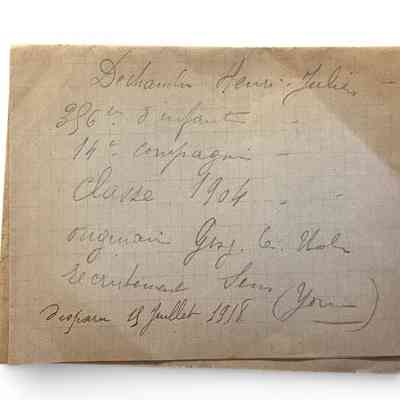 Dechambre Henri-Jules
356e d'infanterie
14e compagnie
Classe 1904
originaire
recrutement Sens (Yonne)
disparu 15 Juillet 1918